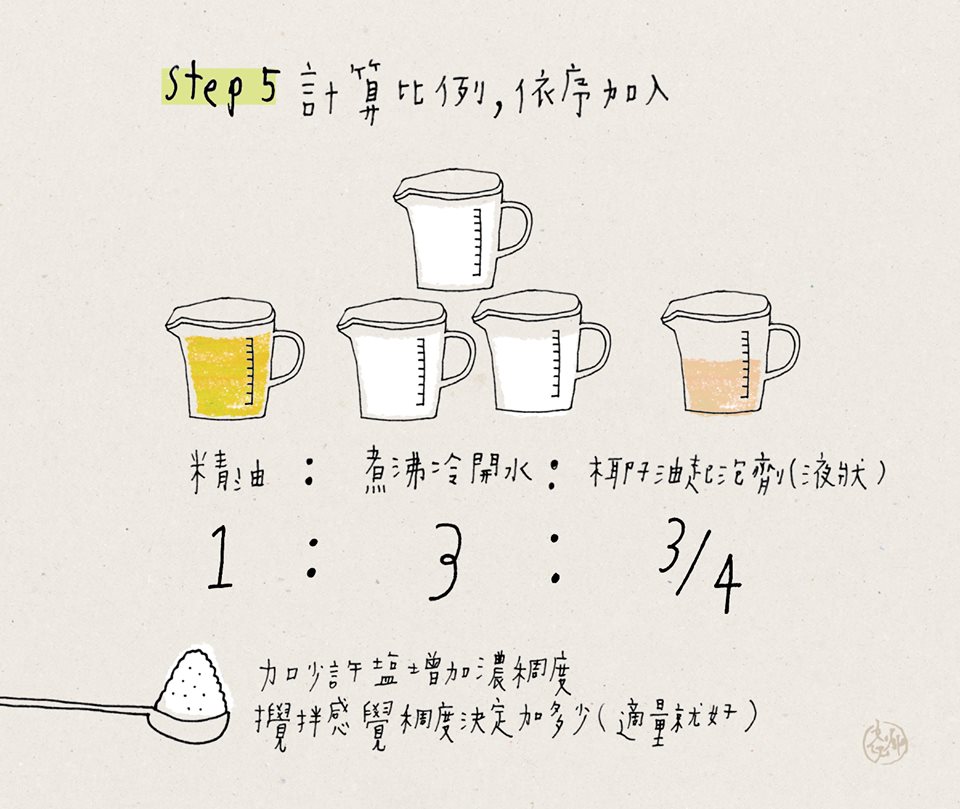 Step 5 計算比例,依序加入
精油 : 煮沸冷開水 : 椰子油起泡劑(液狀)
1 : 3 : 3/4
加少許鹽增加濃稠度
攪拌感覺稠度決定加多少(適量就好)